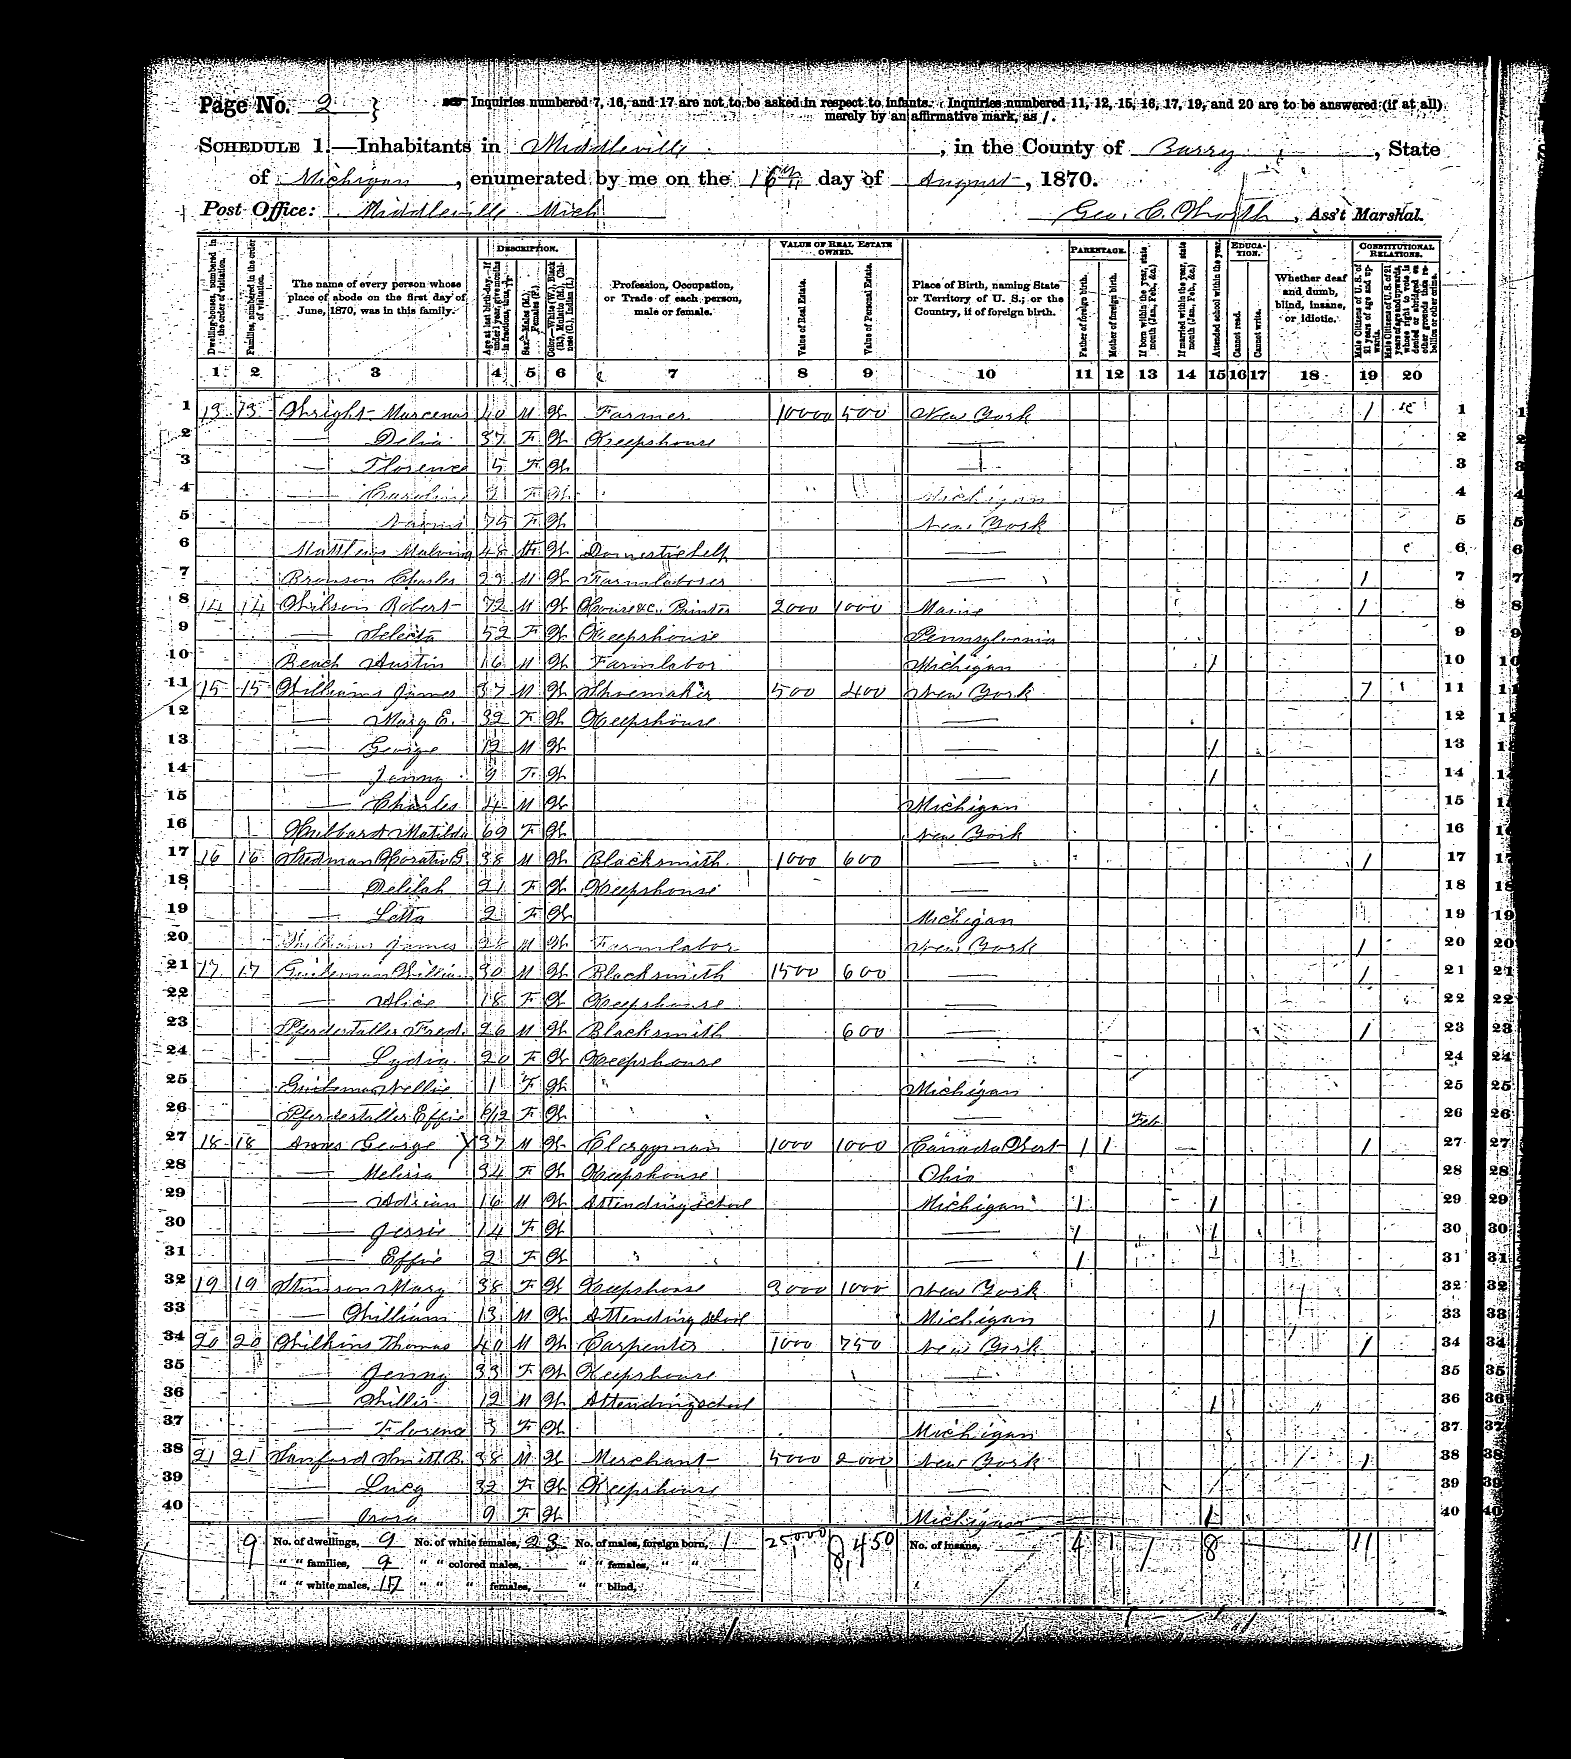 Page No. 2
Inquiries numbered 7, 16, and 17 are not to be asked in respect to infants. Inquiries numbered 11, 12, 15, 16, 17, 19, and 20 are to be answered (if at all)
merely by an affirmative mark, as /.
SCHEDULE 1.—Inhabitants in Middleville, in the County of Barry, State
of Michigan, enumerated by me on the 16th day of August, 1870.
Post Office: Middleville Mich
Geo. C., Ass't Marshal.
DESCRIPTION. VALUE OF REAL ESTATE OWNED. PARENTAGE. EDUCATION. CONSTITUTIONAL RELATIONS.
Dwelling-houses, numbered in the order of visitation.
Families, numbered in the order of visitation.
The name of every person whose place of abode on the first day of June, 1870, was in this family.
Age at last birth-day. If under 1 year, give months in fractions, thus,
Sex.—Males (M.), Females (F.)
Color.—White (W.), Black (B.), Mulatto (M.), Chinese (C.), Indian (I.)
Profession, Occupation, or Trade of each person, male or female.
Value of Real Estate.
Value of Personal Estate.
Place of Birth, naming State or Territory of U. S.; or the Country, if of foreign birth.
Father of foreign birth.
Mother of foreign birth.
If born within the year, state month (Jan., Feb., &c.)
If married within the year, state month (Jan., Feb., &c.)
Attended school within the year.
Cannot read.
Cannot write.
Whether deaf and dumb, blind, insane, or idiotic.
Male Citizens of U. S. of 21 years of age and upwards.
Male Citizens of U. S. of 21 years of age and upwards, whose right to vote is denied or abridged on other grounds than rebellion or other crime.
1 2 3 4 5 6 7 8 9 10 11 12 13 14 15 16 17 18 19 20
1 13 13 Wright Marcenas 40 M W Farmer 10000 500 New York / 1
2 — Delia 37 F W Keepshouse — 2
3 — Florence 5 F W — 3
4 — Caroline 2 F W Michigan 4
5 — Naomi 75 F W New York 5
6 Matthews Malvina 48 F W Domestic help — 6
7 Bronson Charles 23 M W Farmlaborer — / 7
8 14 14 Wilson Robert 72 M W House &c. Painter 2000 1000 Maine / 8
9 — Selecta 52 F W Keepshouse Pennsylvania 9
10 Beach Austin 16 M W Farmlabor Michigan / 10
11 15 15 Williams James 37 M W Shoemaker 500 400 New York / 11
12 — Mary E. 32 F W Keepshouse — 12
13 — George 12 M W — / 13
14 — Fanny 9 F W — / 14
15 — Charles 4 M W Michigan 15
16 Hulbard Matilda 69 F W New York 16
17 16 16 Stedman Horatio G. 38 M W Blacksmith 1000 600 — / 17
18 — Delilah 21 F W Keepshouse — 18
19 — Letta 2 F W Michigan 19
20 Williams James 28 M W Farmlabor New York / 20
21 17 17 William 30 M W Blacksmith 1500 600 — / 21
22 — Alice 18 F W Keepshouse — 22
23 Pferdestaller Fred. 26 M W Blacksmith 600 — / 23
24 — Lydia 20 F W Keepshouse — 24
25 Nellie 1 F W Michigan 25
26 Pferdestaller Effie 6/12 F W — Feb 26
27 18 18 Amos George 37 M W Clergyman 1000 1000 Canada West / / / 27
28 — Melissa 34 F W Keepshouse Ohio 28
29 — Adrian 16 M W Attending school Michigan / / 29
30 — Jessie 14 F W — / / 30
31 — Effie 2 F W — / 31
32 19 19 Stimson Mary 38 F W Keepshouse 3000 1000 New York 32
33 — William 13 M W Attending school Michigan / 33
34 20 20 Wilkins Thomas 40 M W Carpenter 1000 750 New York / 34
35 — Jenny 33 F W Keepshouse — 35
36 — Willis 12 M W Attending school — / 36
37 — Florence 3 F W Michigan 37
38 21 21 Hanford Smith B. 38 M W Merchant 5000 2000 New York / 38
39 — Lucy 32 F W Keepshouse — 39
40 — Orora 9 F W Michigan / 40
9 No. of dwellings, 9 No. of white females, 23 No. of males, foreign born, 1 25,000 8,450 No. of insane, 4 1 1 8 11
" " families, 9 " " colored males, " " females, " "
" " white males, 17 " " " females, " " blind,